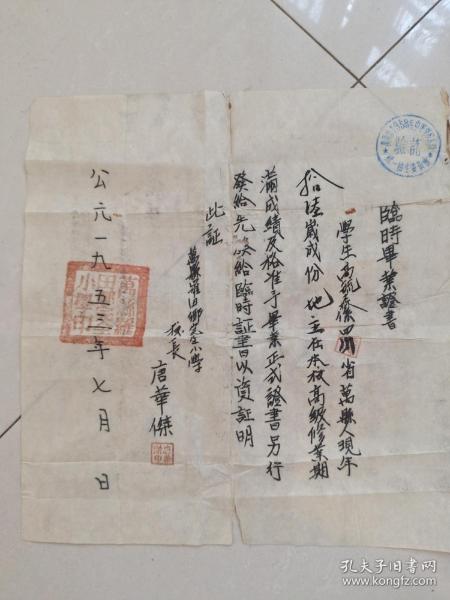 臨時畢業證書
學生高凱泰係四川省萬縣人現年
拾陸歲成份地主在本校高級修業期
滿成績及格准予畢業正式證書另行
發給先發給臨時証書以資証明
此証
萬縣羅田鄉完全小學
校長 唐華傑
公元一九五三年七月 日
驗訖
孔夫子旧书网
www.kongfz.com